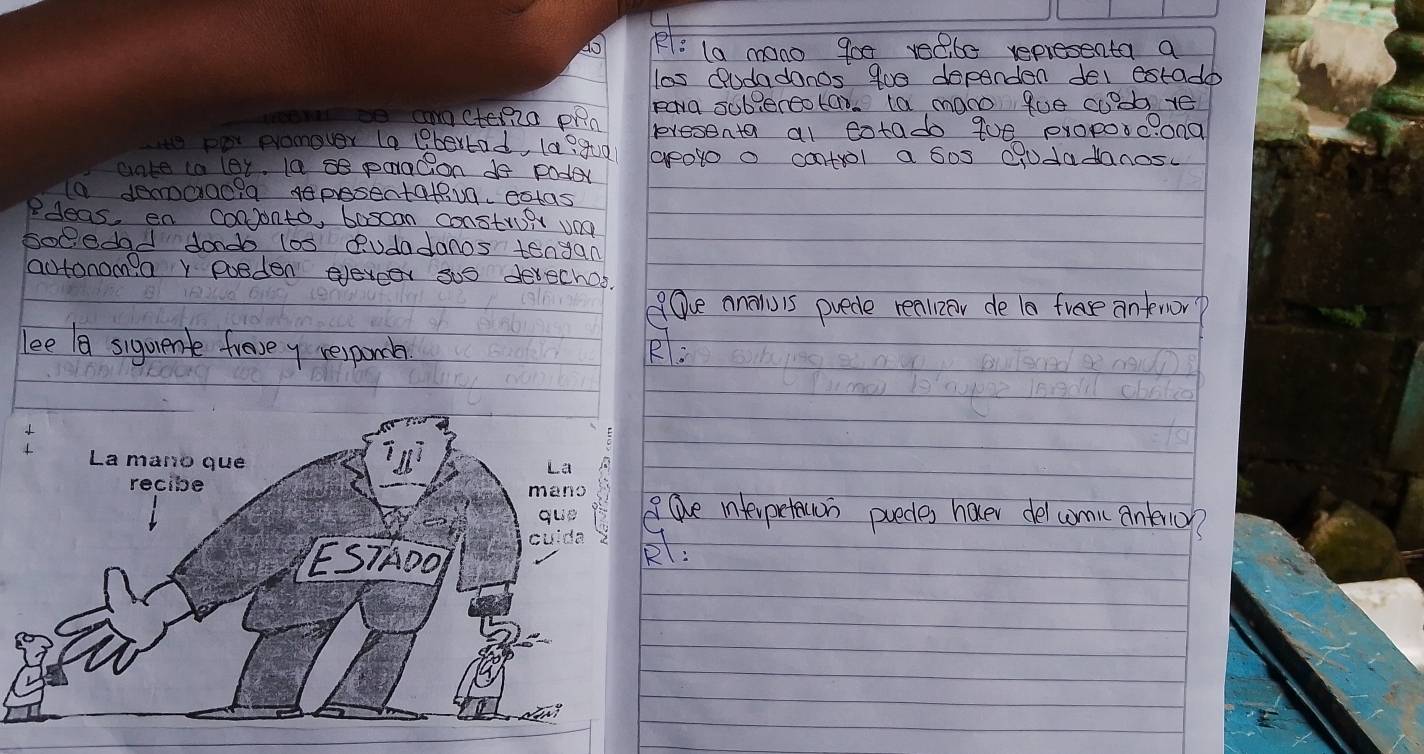 caracteriza prin
por promover la libertad, la igual
ante la ley. la separacion de poder
la democracia representativa. estas
ideas. en conjunto, buscan construir una
sociedad donde los ciudadanos tengan
autonomia y pueden ejercer sus derechos.
lee la siguiente frase y responda.
La mano que
recibe
La
mano
que
cuida
ESTADO
R/: la mano que recibe representa a
los ciudadanos que dependen del estado
para subiereotar. la mano que cuida re
presenta al estado que proporciona
apoyo o control a sus ciudadanos.
¿Que analisis puede realizar de la frase anterior?
R/:
¿Que interpretación puedes hacer del comic anterior?
R/: